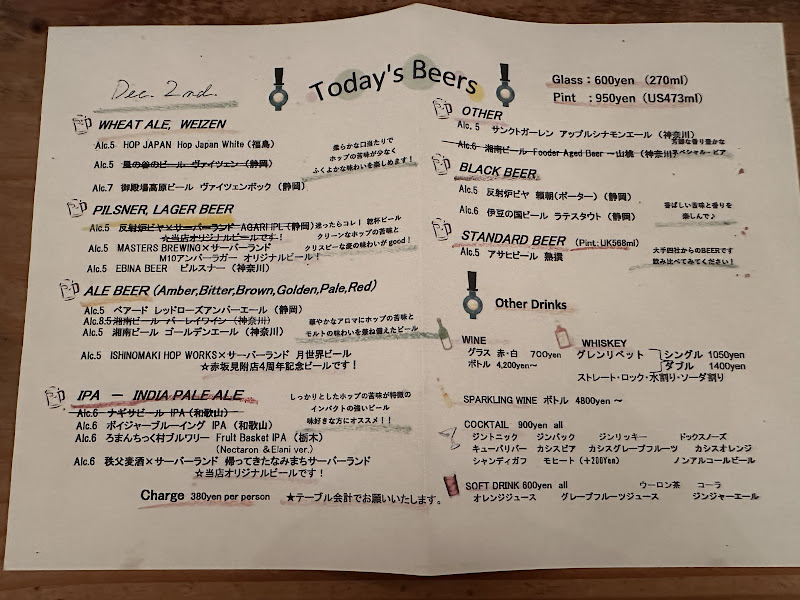 Dec. 2nd.
Today's Beers
Glass : 600yen (270ml)
Pint : 950yen (US473ml)
WHEAT ALE, WEIZEN
Alc.5 HOP JAPAN Hop Japan White (福島)
Alc.5 風の谷のビール ヴァイツェン (静岡)
Alc.7 御殿場高原ビール ヴァイツェンボック (静岡)
柔らかな口当たりで
ホップの苦味が少なく
ふくよかな味わいを楽しめます!
PILSNER, LAGER BEER
Alc.5 反射炉ビヤ×サーバーランド AGARI IPL (静岡)
☆当店オリジナルビールです!
Alc.5 MASTERS BREWING×サーバーランド
M10アンバーラガー オリジナルビール!
Alc.5 EBINA BEER ピルスナー (神奈川)
迷ったらコレ! 乾杯ビール
クリーンなホップの苦味と
クリスピーな麦の味わいが good!
ALE BEER (Amber,Bitter,Brown,Golden,Pale,Red)
Alc.5 ベアード レッドローズアンバーエール (静岡)
Alc.8.5 湘南ビール バーレイワイン (神奈川)
Alc.5 湘南ビール ゴールデンエール (神奈川)
華やかなアロマにホップの苦味と
モルトの味わいを兼ね備えたビール
Alc.5 ISHINOMAKI HOP WORKS×サーバーランド 月世界ビール
☆赤坂見附店4周年記念ビールです!
IPA － INDIA PALE ALE
Alc.6 ナギサビール IPA (和歌山)
Alc.6 ボイジャーブルーイング IPA (和歌山)
Alc.6 ろまんちっく村ブルワリー Fruit Basket IPA (栃木)
(Nectaron & Elani ver.)
Alc.6 秩父麦酒×サーバーランド 帰ってきたなみまちサーバーランド
☆当店オリジナルビールです!
しっかりとしたホップの苦味が特徴の
インパクトの強いビール
味好きな方にオススメ!!
Charge 380yen per person ★テーブル会計でお願いいたします。
OTHER
Alc. 5 サンクトガーレン アップルシナモンエール (神奈川)
Alc.6 湘南ビール Fooder Aged Beer ～山桃 (神奈川)
芳醇な香り豊かな
スペシャル・ビア
BLACK BEER
Alc.5 反射炉ビヤ 頼朝(ポーター) (静岡)
Alc.6 伊豆の国ビール ラテスタウト (静岡)
香ばしい苦味と香りを
楽しんで♪
STANDARD BEER (Pint: UK568ml)
Alc.5 アサヒビール 熟撰
大手四社からのBEERです
飲み比べてみてください!
Other Drinks
WINE
グラス 赤・白 700yen
ボトル 4,200yen～
WHISKEY
グレンリベット シングル 1050yen
ダブル 1400yen
ストレート・ロック・水割り・ソーダ割り
SPARKLING WINE ボトル 4800yen ～
COCKTAIL 900yen all
ジントニック ジンバック ジンリッキー ドックスノーズ
キューバリバー カシスビア カシスグレープフルーツ カシスオレンジ
シャンディガフ モヒート (+200Yen) ノンアルコールビール
SOFT DRINK 600yen all ウーロン茶 コーラ
オレンジジュース グレープフルーツジュース ジンジャーエール